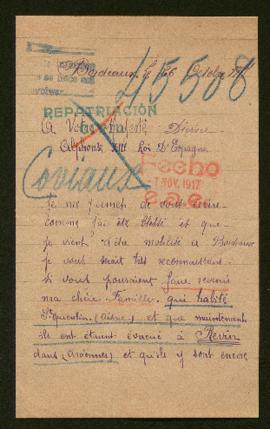 Bordeaux le 26 Octobre 1917
45508
REPATRIACION
A Votre Majesté Divine
Alphonse XIII Roi D'Espagne
Coniaux
Fecho
7 NOV. 1917
Je me permet de vous écrire
comme j'ai été blessé et que
je vient d'etre mobilisé à Bordeaux
je vous serait très reconnaissant
si vous pouvaient faire revenir
ma chère Famille qui habité
St Quentin, (Aisne) et que maintenant
ils ont étaient évacué à Revin
dans (Ardennes) et qu'ils y sont encore